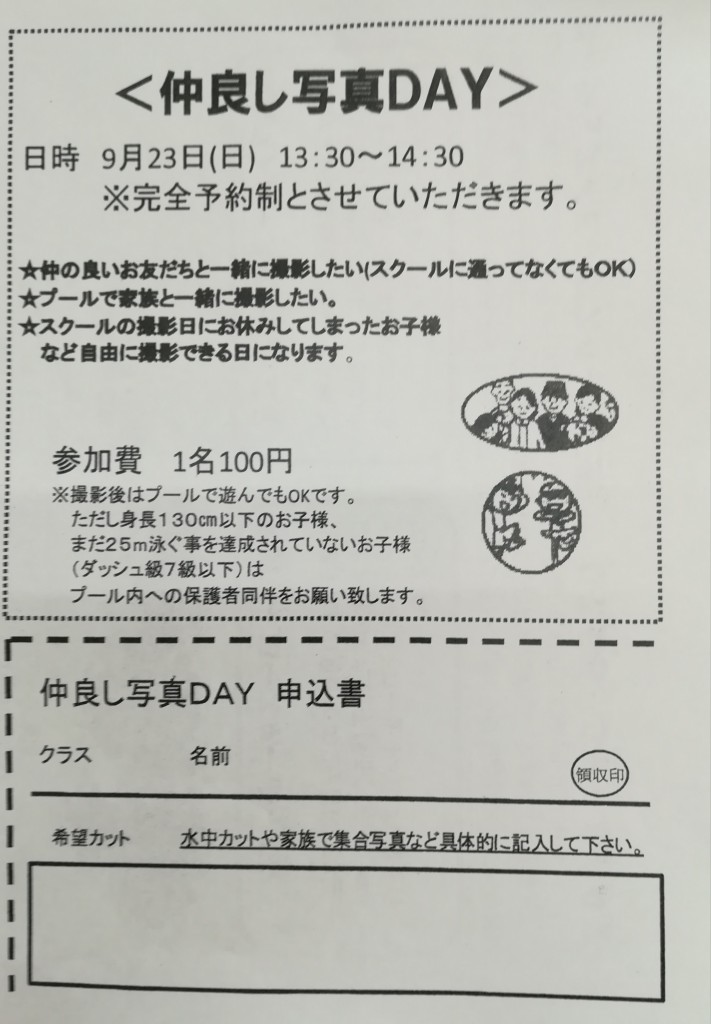 ＜仲良し写真DAY＞
日時 9月23日(日) 13:30～14:30
※完全予約制とさせていただきます。
☆仲の良いお友だちと一緒に撮影したい(スクールに通ってなくてもOK)
☆プールで家族と一緒に撮影したい。
☆スクールの撮影日にお休みしてしまったお子様
など自由に撮影できる日になります。
参加費 1名100円
※撮影後はプールで遊んでもOKです。
ただし身長130㎝以下のお子様、
まだ25m泳ぐ事を達成されていないお子様
(ダッシュ級7級以下)は
プール内への保護者同伴をお願い致します。
仲良し写真DAY 申込書
クラス 名前
領収印
希望カット 水中カットや家族で集合写真など具体的に記入して下さい。